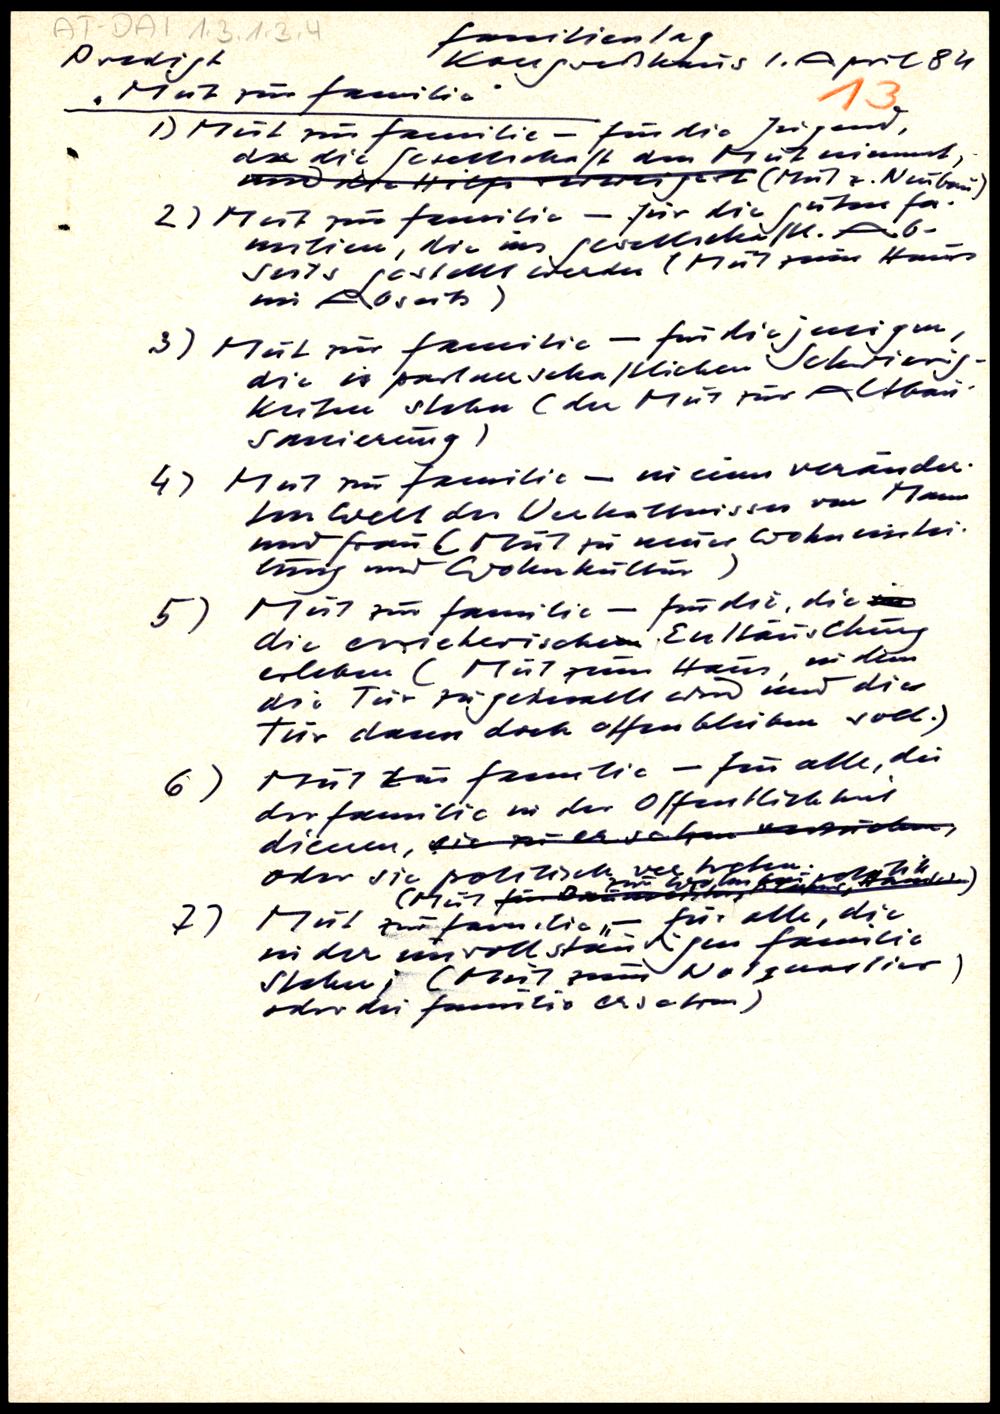 AT-DAI 1.3.1.3.4
Familientag
Predigt Kongreßhaus 1. April 84
"Mut zur Familie" 13
1) Mut zur Familie – für die Jugend,
da die Gesellschaft den Mut nimmt,
und die Hilfe verweigert (Mut z. Neubau)
2) Mut zur Familie – für die guten Fa-
milien, die ins gesellschaftl. Ab-
seits gestellt werden (Mut zum Haus
im Abseits)
3) Mut zur Familie – für diejenigen,
die in partnerschaftlichen Schwierig-
keiten stehen (der Mut zur Altbau-
sanierung)
4) Mut zur Familie – in einer veränder-
ten Welt der Verhältnisse von Mann
und Frau (Mut zu neuer Wohneintei-
lung und Wohnkultur)
5) Mut zur Familie – für die, die in
die erzieherische Enttäuschung
erleben (Mut zum Haus, in dem
die Tür zugeknallt wird und die
Tür dann doch offenbleiben soll.)
6) Mut zur Familie – für alle, die
der Familie in der Öffentlichkeit
dienen, sie zu ersetzen versuchen,
oder sie politisch vertreten.
(Mut zur Wohnbaupolitik)
7) Mut zur Familie – für alle, die
in der unvollständigen Familie
stehen; (Mut zum Notquartier)
oder die Familie ersetzen)